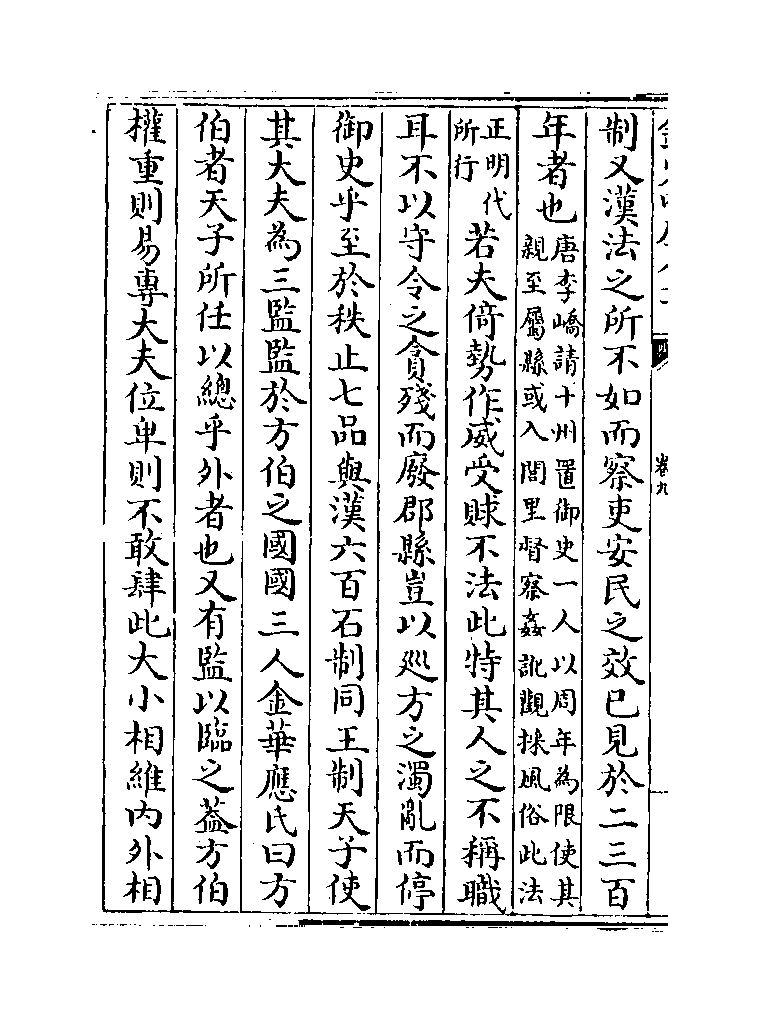 制又漢法之所不如而察吏安民之效已見於二三百
年者也唐李嶠請十州置御史一人以周年為限使其親至屬縣或入閭里督察姦訛觀採風俗此法
正明代所行若夫倚勢作威受賕不法此特其人之不稱職
耳不以守令之貪殘而廢郡縣豈以廵方之濁亂而停
御史乎至於秩止七品與漢六百石制同王制天子使
其大夫為三監監於方伯之國國三人金華應氏曰方
伯者天子所任以總乎外者也又有監以臨之蓋方伯
權重則易專大夫位卑則不敢肆此大小相維內外相
卷九